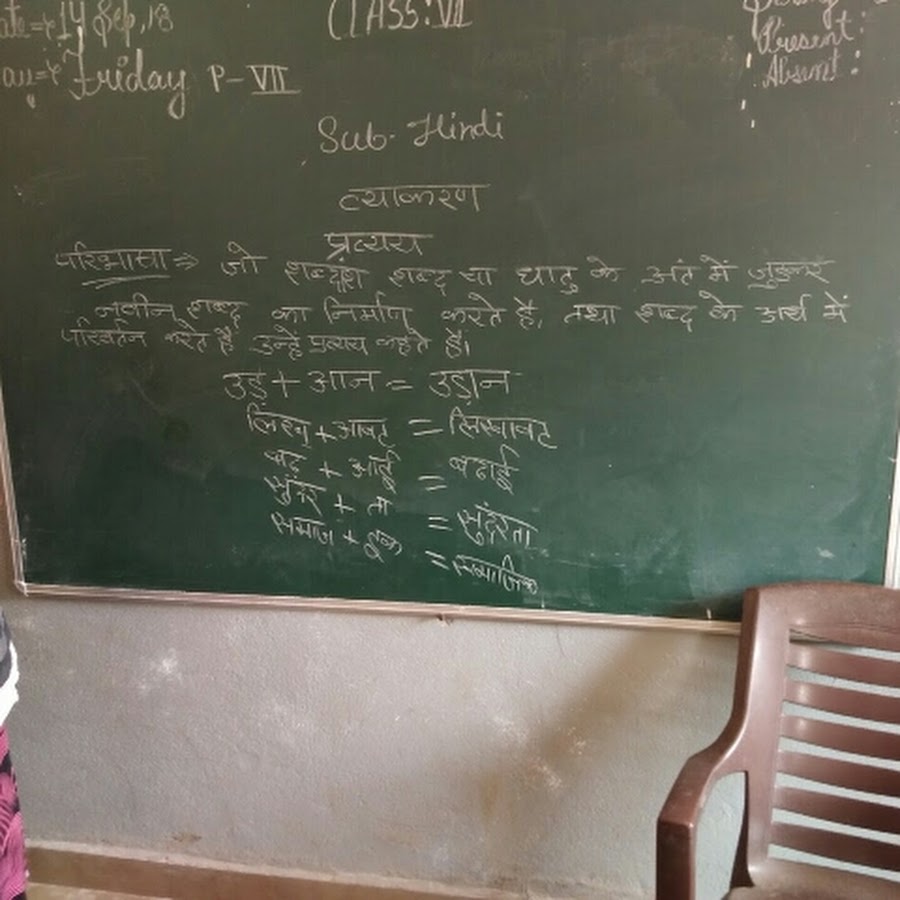 14 Sep, 18
CLASS: VII
Present :
Absent :
Friday P-VII
Sub- Hindi
व्याकरण
प्रत्यय
परिभाषा ⇒ जो शब्दांश शब्द या धातु के अंत में जुड़कर
नवीन शब्द का निर्माण करते है, तथा शब्द के अर्थ में
परिवर्तन करते है उन्हें प्रत्यय कहते है।
उड़ + आन = उड़ान
लिख + आवट = लिखावट
पढ़ + आई = पढाई
सुंदर + ता = सुंदरता
समाज + इक = सामाजिक